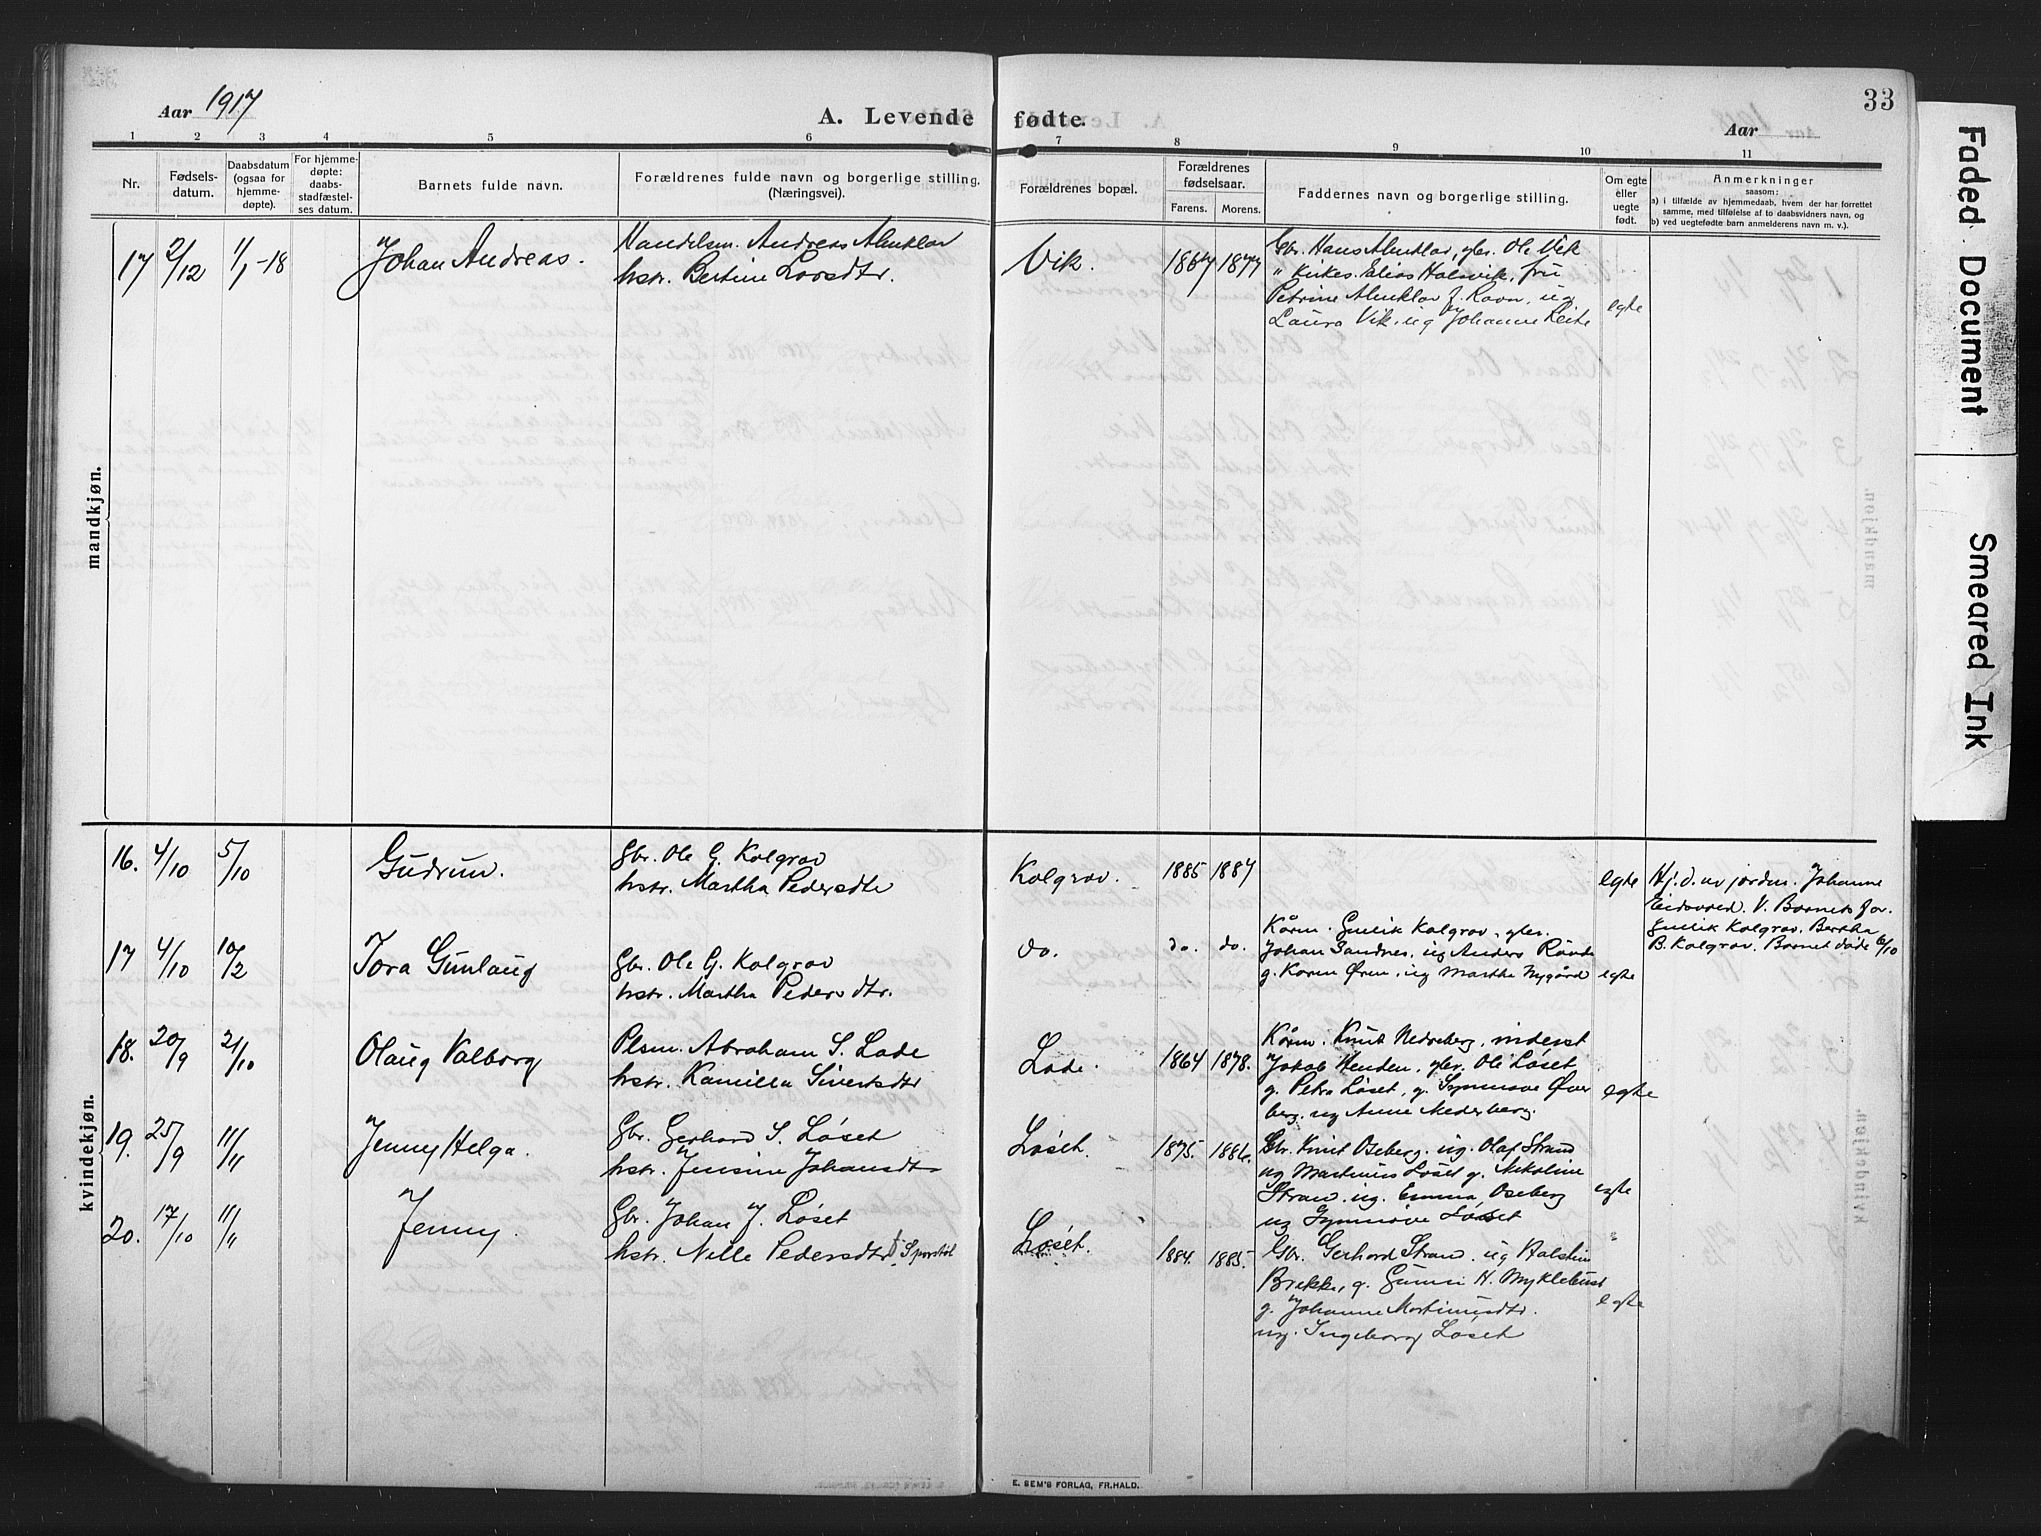 Aar 1917
A. Levende fødte.
Aar
33
1 2 3 4 5 6 7 8 9 10 11
Nr.
Fødsels-
datum.
Daabsdatum
(ogsaa for
hjemme-
døpte).
For hjemme-
døpte:
daabs-
stadfæstel-
ses datum.
Barnets fulde navn.
Forældrenes fulde navn og borgerlige stilling.
(Næringsvei).
Forældrenes bopæl.
Forældrenes
fødselsaar.
Farens. Morens.
Faddernes navn og borgerlige stilling.
Om egte
eller
uegte
født.
Anmerkninger
saasom:
a) i tilfælde av hjemmedaab, hvem der har forrettet
samme, med tilføielse af to daabsvidners navn, og
b) ved uegtefødte barn anmelderens navn m. v.).
mandkjøn.
17 2/12 1/1-18 Johan Andreas.
Handelsm. Andreas Almklov
hstr. Bertine Larsdtr.
Vik. 1867 1877
Gbr. Hans Almklov, gbr. Ole Vik
" Kirkes. Elias Halsvik, fru
Petrine Almklov f. Ravn, ug
Laura Vik, ug Johanne Leite
egte
kvindekjøn.
16. 4/10 5/10 Gudrun.
Gbr. Ole G. Kolgrov
hstr. Martha Pedersdtr
Kolgrov. 1885 1887
egte
Hj. d. av jordm. Johanne
V. Barnets far.
Gunlik Kolgrov. Bertha
B. Kolgrov. Barnet døde 6/10
17 4/10 10/2 Tora Gunlaug
Gbr. Ole G. Kolgrov
hstr. Martha Pedersdtr.
do. do. do.
Kårm. Gunlik Kolgrov, gbr.
Johan Sandnes, ug Anders
g. Karen Øren, ug Martha Nygård
egte
18. 20/9 21/10 Olaug Valborg
Plsm. Abraham S. Lade
hstr. Kamilla Sivertsdtr
Lade. 1864 1878.
Kårm. Knut Nedreberg, inderst
Jakob Henden, gbr. Ole Løset
g. Petra Løset, g. Synnøve Øver
berg, ug Anne Nederberg.
egte
19. 25/9 11/11 Jenny Helga.
Gbr. Gerhard S. Løset
hstr. Jensine Johansdtr
Løset. 1875. 1886.
Gbr. Knut Oseberg, ug. Olaf Strand
ug Martinus Løset g. Nikoline
Stran. ug. Emma Oseberg
ug Synnøve Løset
egte
"
20. 17/10 11/11 Jenny.
Gbr. Johan J. Løset
hstr. Nille Pedersdtr
Løset. 1884. 1885.
Gbr. Gerhard Strand. ug Halstein
Brekke, g. Gunni H. Myklebust
g. Johanne Martinusdtr.
ug. Ingeborg Løset
egte
E. SEM'S FORLAG, FR.HALD.
Faded Document
Smeared Ink